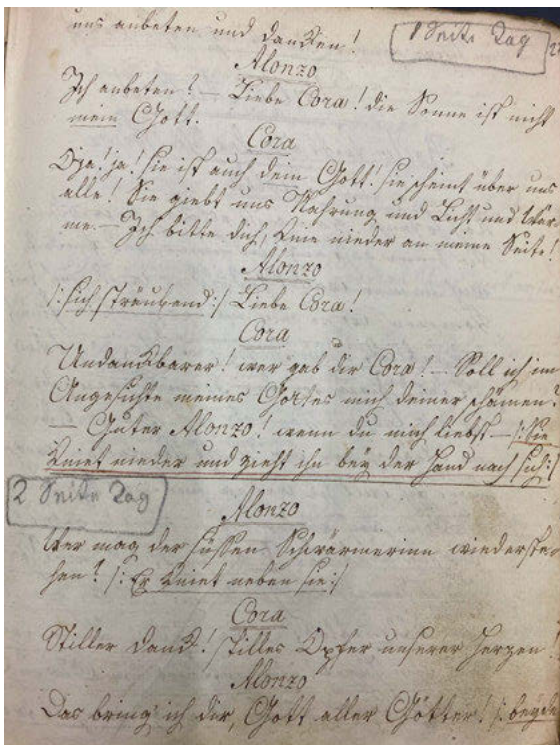 uns anbeten und danken!
1 Seite Tag
Alonzo
Ich anbeten? — Liebe Cora! die Sonne ist nicht
mein Gott.
Cora
O ja! ja! sie ist auch dein Gott! sie scheint über uns
alle! Sie giebt uns Nahrung und Licht und Wär-
me. — Ich bitte dich, knie nieder an meine Seite!
Alonzo
/: sich sträubend :/ Liebe Cora!
Cora
Undankbarer! wer gab dir Cora! — Soll ich im
Angesichte meines Gottes mich deiner schämen?
— Guter Alonzo! wenn du mich liebst — /: Sie
kniet nieder und zieht ihn bey der Hand nach sich :/
2 Seite Tag
Alonzo
Wer mag der süssen Schwärmerinn wiederste-
hen? /: Er kniet neben sie :/
Cora
Stiller Dank! stilles Opfer unserer Herzen
Alonzo
Das bring ich dir, Gott aller Götter! /: beyde